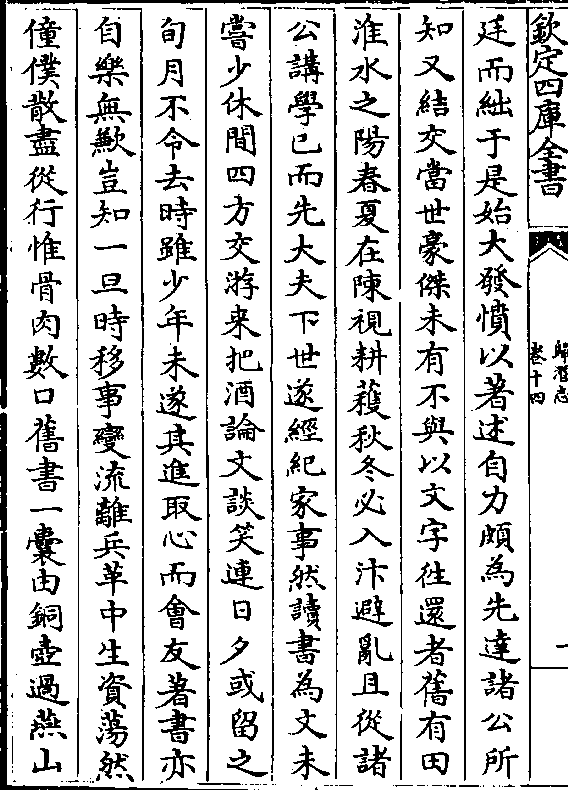 欽定四庫全書
歸潛志
卷十四
一
廷而絀于是始大發憤以著述自力頗為先達諸公所
知又結交當世豪傑未有不與以文字徃還者舊有田
淮水之陽春夏在陳視耕穫秋冬必入汴避亂且從諸
公講學已而先大夫下世遂經紀家事然讀書為文未
嘗少休間四方交游来把酒論文談笑連日夕或留之
旬月不令去時雖少年未遂其進取心而會友著書亦
自樂無歉豈知一旦時移事變流離兵革中生資蕩然
僮僕散盡從行惟骨肉數口舊書一囊由銅壺過燕山